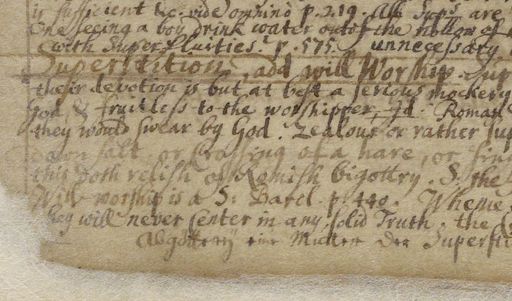 is sufficient &c. vide omnino p. 219. All Sup's. are
One seeing a boy drink water out of the hollow of
with Superfluities. p. 575. unnecessary
Superstition, add will Worship. Sup
their devotion is but at best a serious mockery
God & fruitless to the worshipper, Id. Roman
they would swear by God. Zealous or rather sup
down salt, or crossing of a hare, or sin
this doth relish of Romish bigottry. S. the
Will worship is a S: Barcl. p. 440.
they will never center in any solid Truth. the
Abgötterey eine Mutter der Superstit